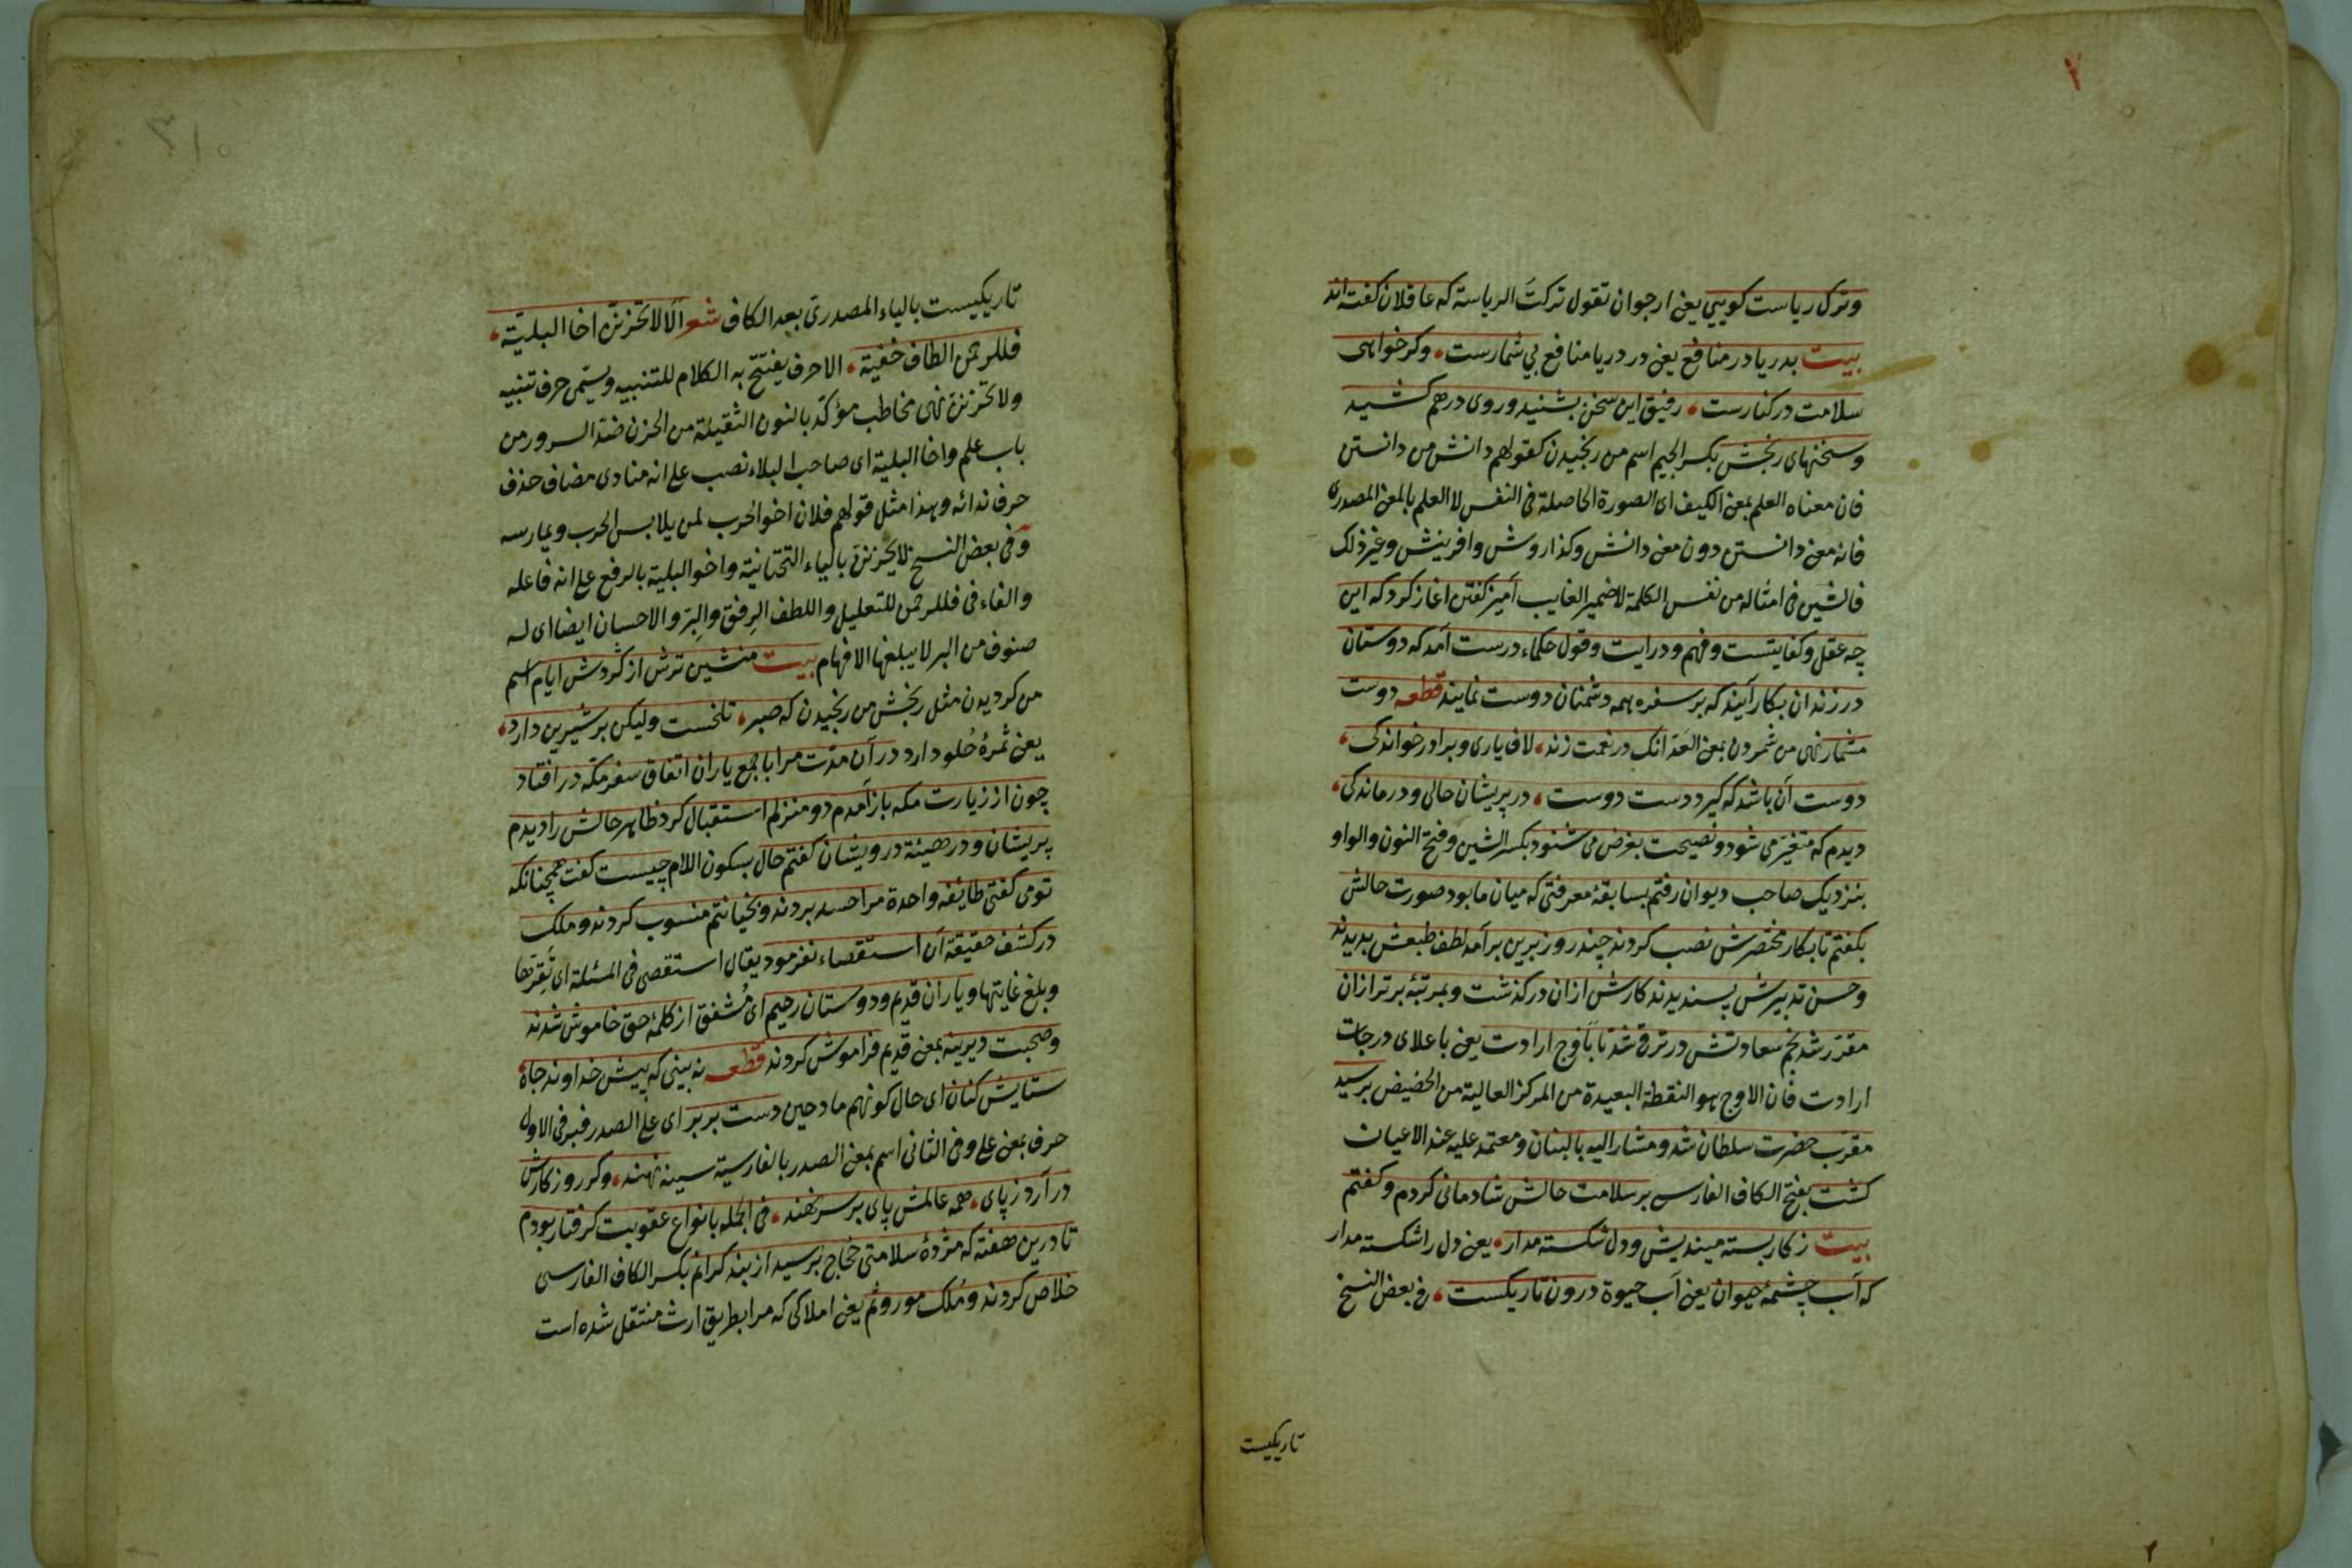 وترک ریاست کوییی یعنی ارجوان تقول ترکتَ الریاسة که عاقلان کفته اند
بیت بدریا در منافع یعنی در دریا منافع بی شمارست، وکر خواهی
سلامت در کنارست، رفیق این سخن بشنید وروی درهم کشید
وسخنهای رنجش بکسر الجیم اسم من رنجیدن کقولهم دانش من دانستن
فان معناه العلم بمعنی الکیف ای الصورة الحاصلة فی النفس لا العلم بالمعنی المصدری
فانه معنی دانستن دون معنی دانش وکذا روش وافرینش وغیر ذلک
فالشین فی امثاله من نفس الکلمة لا ضمیر الغایب آمیز کفتن اغاز کرد که این
چه عقل وکفایتست وفهم ودرایت وقول حکماء درست آمد که دوستان
در زندان بکار آیند که بر سفره همه دشمنان دوست نمایند قطعه دوست
مشمار نهی من شمردن بمعنی العَدّ آنک در نعمت زند، لاف یاری وبرادر خواندکی،
دوست آن باشد که کیرد دست دوست، در پریشان حالی ودرماندکی،
دیدم که متغیّر می شود ونصیحت بغرض می شنود بکسر الشین وفتح النون والواو
بنزدیک صاحب دیوان رفتم بسابقهٔ معرفتی که میان ما بود صورت حالش
بکفتم تا بکار مختصرش نصب کردند چند روز برین برآمد لطف طبعش بدیدند
وحسن تدبیرش پسندیدند کارش ازان درکذشت وبمرتبهٔ برتر ازان
مقرّر شد نجم سعادتش در ترقی شد تا باَوج ارادت یعنی باعلای درجات
ارادت فان الاوج هو النقطة البعیدة من المرکز العالیة من الحضیض برسید
مقرّب حضرت سلطان شد ومشار الیه بالبنان ومعتمد علیه عند الاعیان
کشت بفتح الکاف الفارسی بر سلامت حالش شادمانی کردم وکفتم
بیت ز کار بسته میندیش ودل شکسته مدار، یعنی دل را شکسته مدار
که آب چشمهٔ حیوان یعنی آب حیوة درون تاریکست، وفی بعض النسخ
تاریکیست
تاریکیست بالیاء المصدری بعد الکاف شعر اَلَا لا تحزننّ اخا البلیّة،
فللرحمن الطاف خفیة، الا حرف یفتتح به الکلام للتنبیه ویسمی حرف تنبیه
ولا تحزننّ نهی مخاطب مؤکد بالنون الثقیلة من الحزن ضدّ السرور من
باب علم واخا البلیة ای صاحب البلاء نصب علی انه منادی مضاف حذف
حرف ندائه وهذا مثل قولهم فلان اخو الحرب لمن یلابس الحرب ویمارسه
وفی بعض النسخ لا یحزننّ بالیاء التحتانیة واخو البلیة بالرفع علی انه فاعله
والفاء فی فللرحمن للتعلیل واللطف الرِفق والبِرّ والاحسان ایضا ای له
صنوف من البر لا یبلغها الافهام بیت منشین ترش از کردش ایام اسم
من کردیدن مثل رنجش من رنجیدن که صبر، تلخست ولیکن بر شیرین دارد،
یعنی ثمرهٔ حُلو دارد در آن مدّت مرا با جمع یاران اتفاق سفر مکّه در افتاد
چون از زیارت مکه باز آمدم دو منزلم استقبال کرد ظاهر حالش را دیدم
پریشان ودر هیئة درویشان کفتم حال بسکون اللام چیست کفت همچنانکه
تومی کفتی طائفه واحدة مرا حسد بردند وبخیانتم منسوب کردند وملک
در کشف حقیقة آن استقصاء نفرمود یقال استقصی فی المسئلة ای
وبلغ غایتها ویاران قدیم ودوستان رحیم ای مُشفق از کلمهٔ حق خاموش شدند
وصحبت دیرینه بمعنی قدیم فراموش کردند قطعه نه بینی که پیش خداوند جاه،
ستایش کنان ای حال کونهم مادحین دست بر بر ای علی الصدر فبر فی الاول
حرف بمعنی علی وفی الثانی اسم بمعنی الصدر بالفارسیة سینه نهند، وکر روزکارش
در آرد ز پای، همه عالمش پای بر سر نهند، فی الجمله بانواع عقوبت کرفتار بودم
تا درین هفته که مژدهٔ سلامتی حجاج برسید از بند کرانم بکسر الکاف الفارسی
خلاص کردند ومُلک موروثم یعنی املاکی که مرا بطریق ارث منتقل شده است